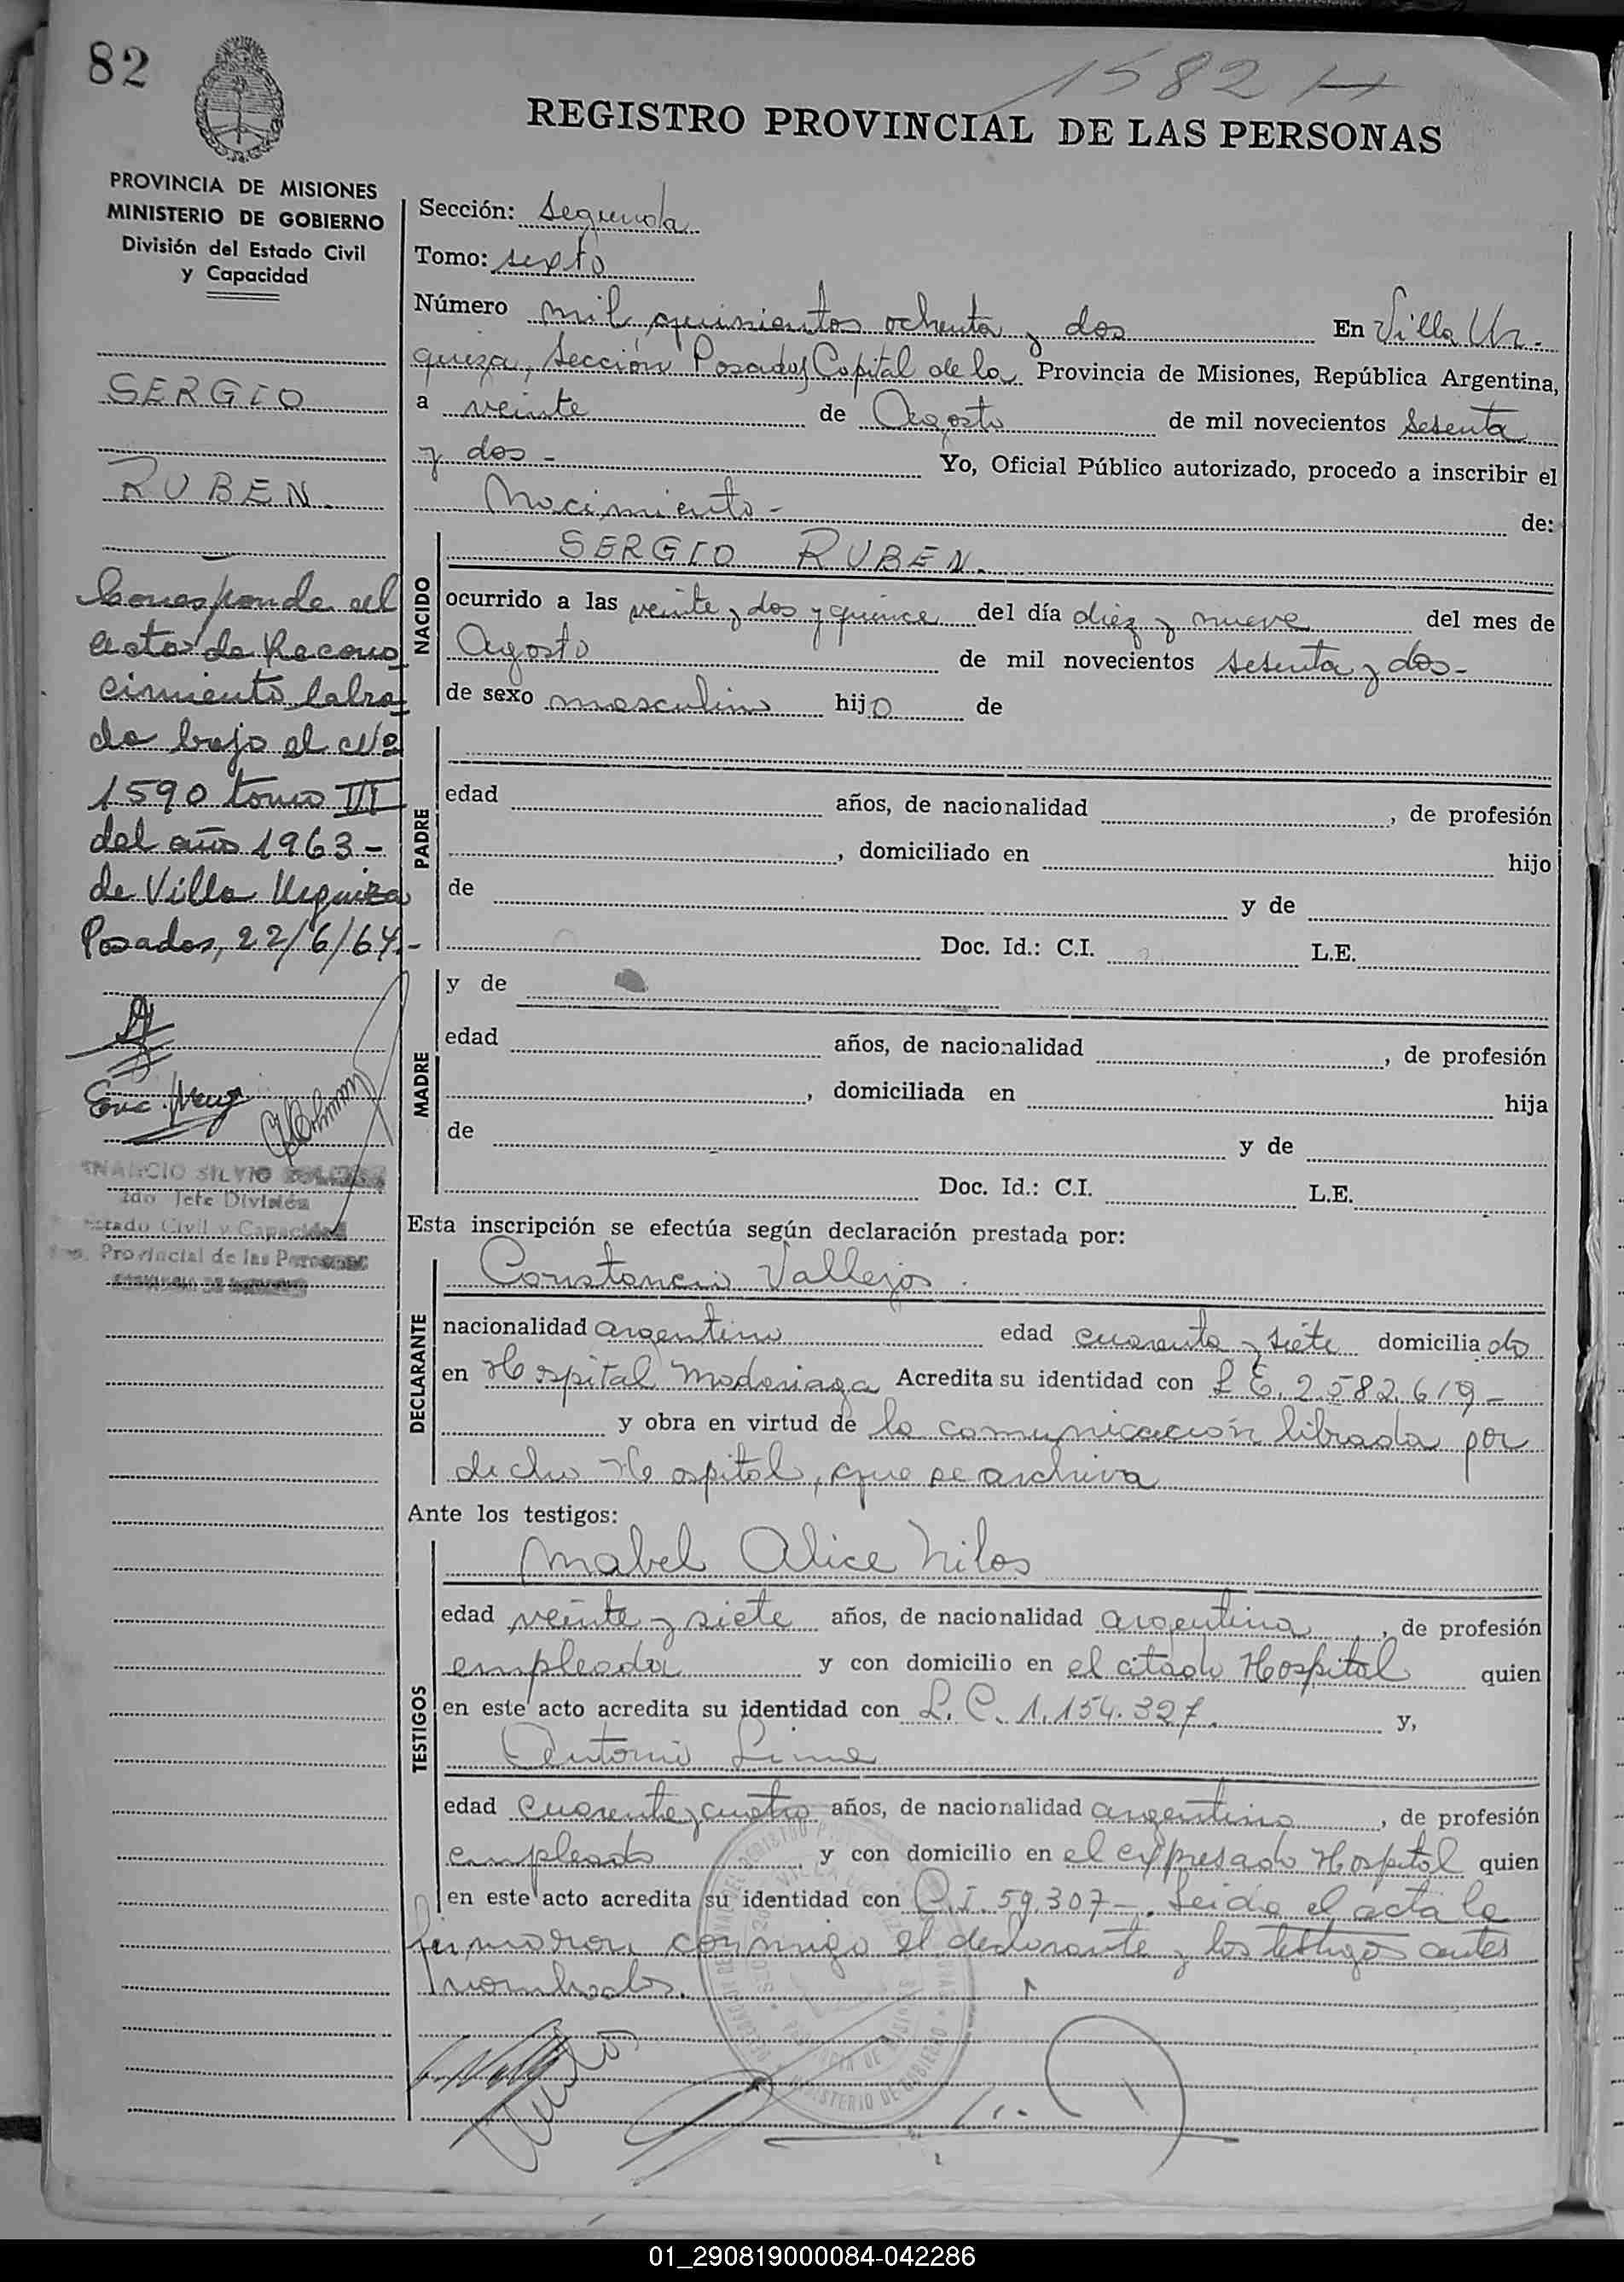 82
1582 H
REGISTRO PROVINCIAL DE LAS PERSONAS
PROVINCIA DE MISIONES
MINISTERIO DE GOBIERNO
División del Estado Civil
y Capacidad
SERGIO
RUBEN.
Corresponde al
acta de Recono
cimiento labra
do bajo el Nº
1590 tomo III
del año 1963-
de Villa Urquiza
Posadas, 22/6/64.-
SILVIO
2do Jefe División
Estado Civil y Capacidad
Provincial de las Personas
Sección: Segunda
Tomo: sexto
Número mil quinientos ochenta y dos En Villa Ur-
quiza, Sección Posadas Capital de la Provincia de Misiones, República Argentina,
a veinte de Agosto de mil novecientos sesenta
y dos - Yo, Oficial Público autorizado, procedo a inscribir el
Nacimiento - de:
NACIDO
SERGIO RUBEN.
ocurrido a las veinte y dos y quince del día diez y nueve del mes de
Agosto de mil novecientos sesenta y dos-
de sexo masculino hijo de
PADRE
edad años, de nacionalidad , de profesión
, domiciliado en hijo
de y de
Doc. Id.: C.I. L.E.
MADRE
y de
edad años, de nacionalidad , de profesión
, domiciliada en hija
de y de
Doc. Id.: C.I. L.E.
Esta inscripción se efectúa según declaración prestada por:
DECLARANTE
Constancio Vallejos.
nacionalidad argentino edad cuarenta y siete domiciliado
en Hospital Madariaga Acredita su identidad con L E. 2.582.619-
y obra en virtud de la comunicación librada por
dicho Hospital, que se archiva
Ante los testigos:
TESTIGOS
Mabel Alice Nilos
edad veinte y siete años, de nacionalidad argentina, de profesión
empleada y con domicilio en el citado Hospital quien
en este acto acredita su identidad con L. C. 1.154.327. y,
Antonio Lima
edad cuarenta y cuatro años, de nacionalidad argentino, de profesión
empleado y con domicilio en el expresado Hospital quien
en este acto acredita su identidad con C.I. 59.307-. Leida el acta la
firmaron conmigo el declarante y los testigos antes
nombrados.
01_290819000084-042286